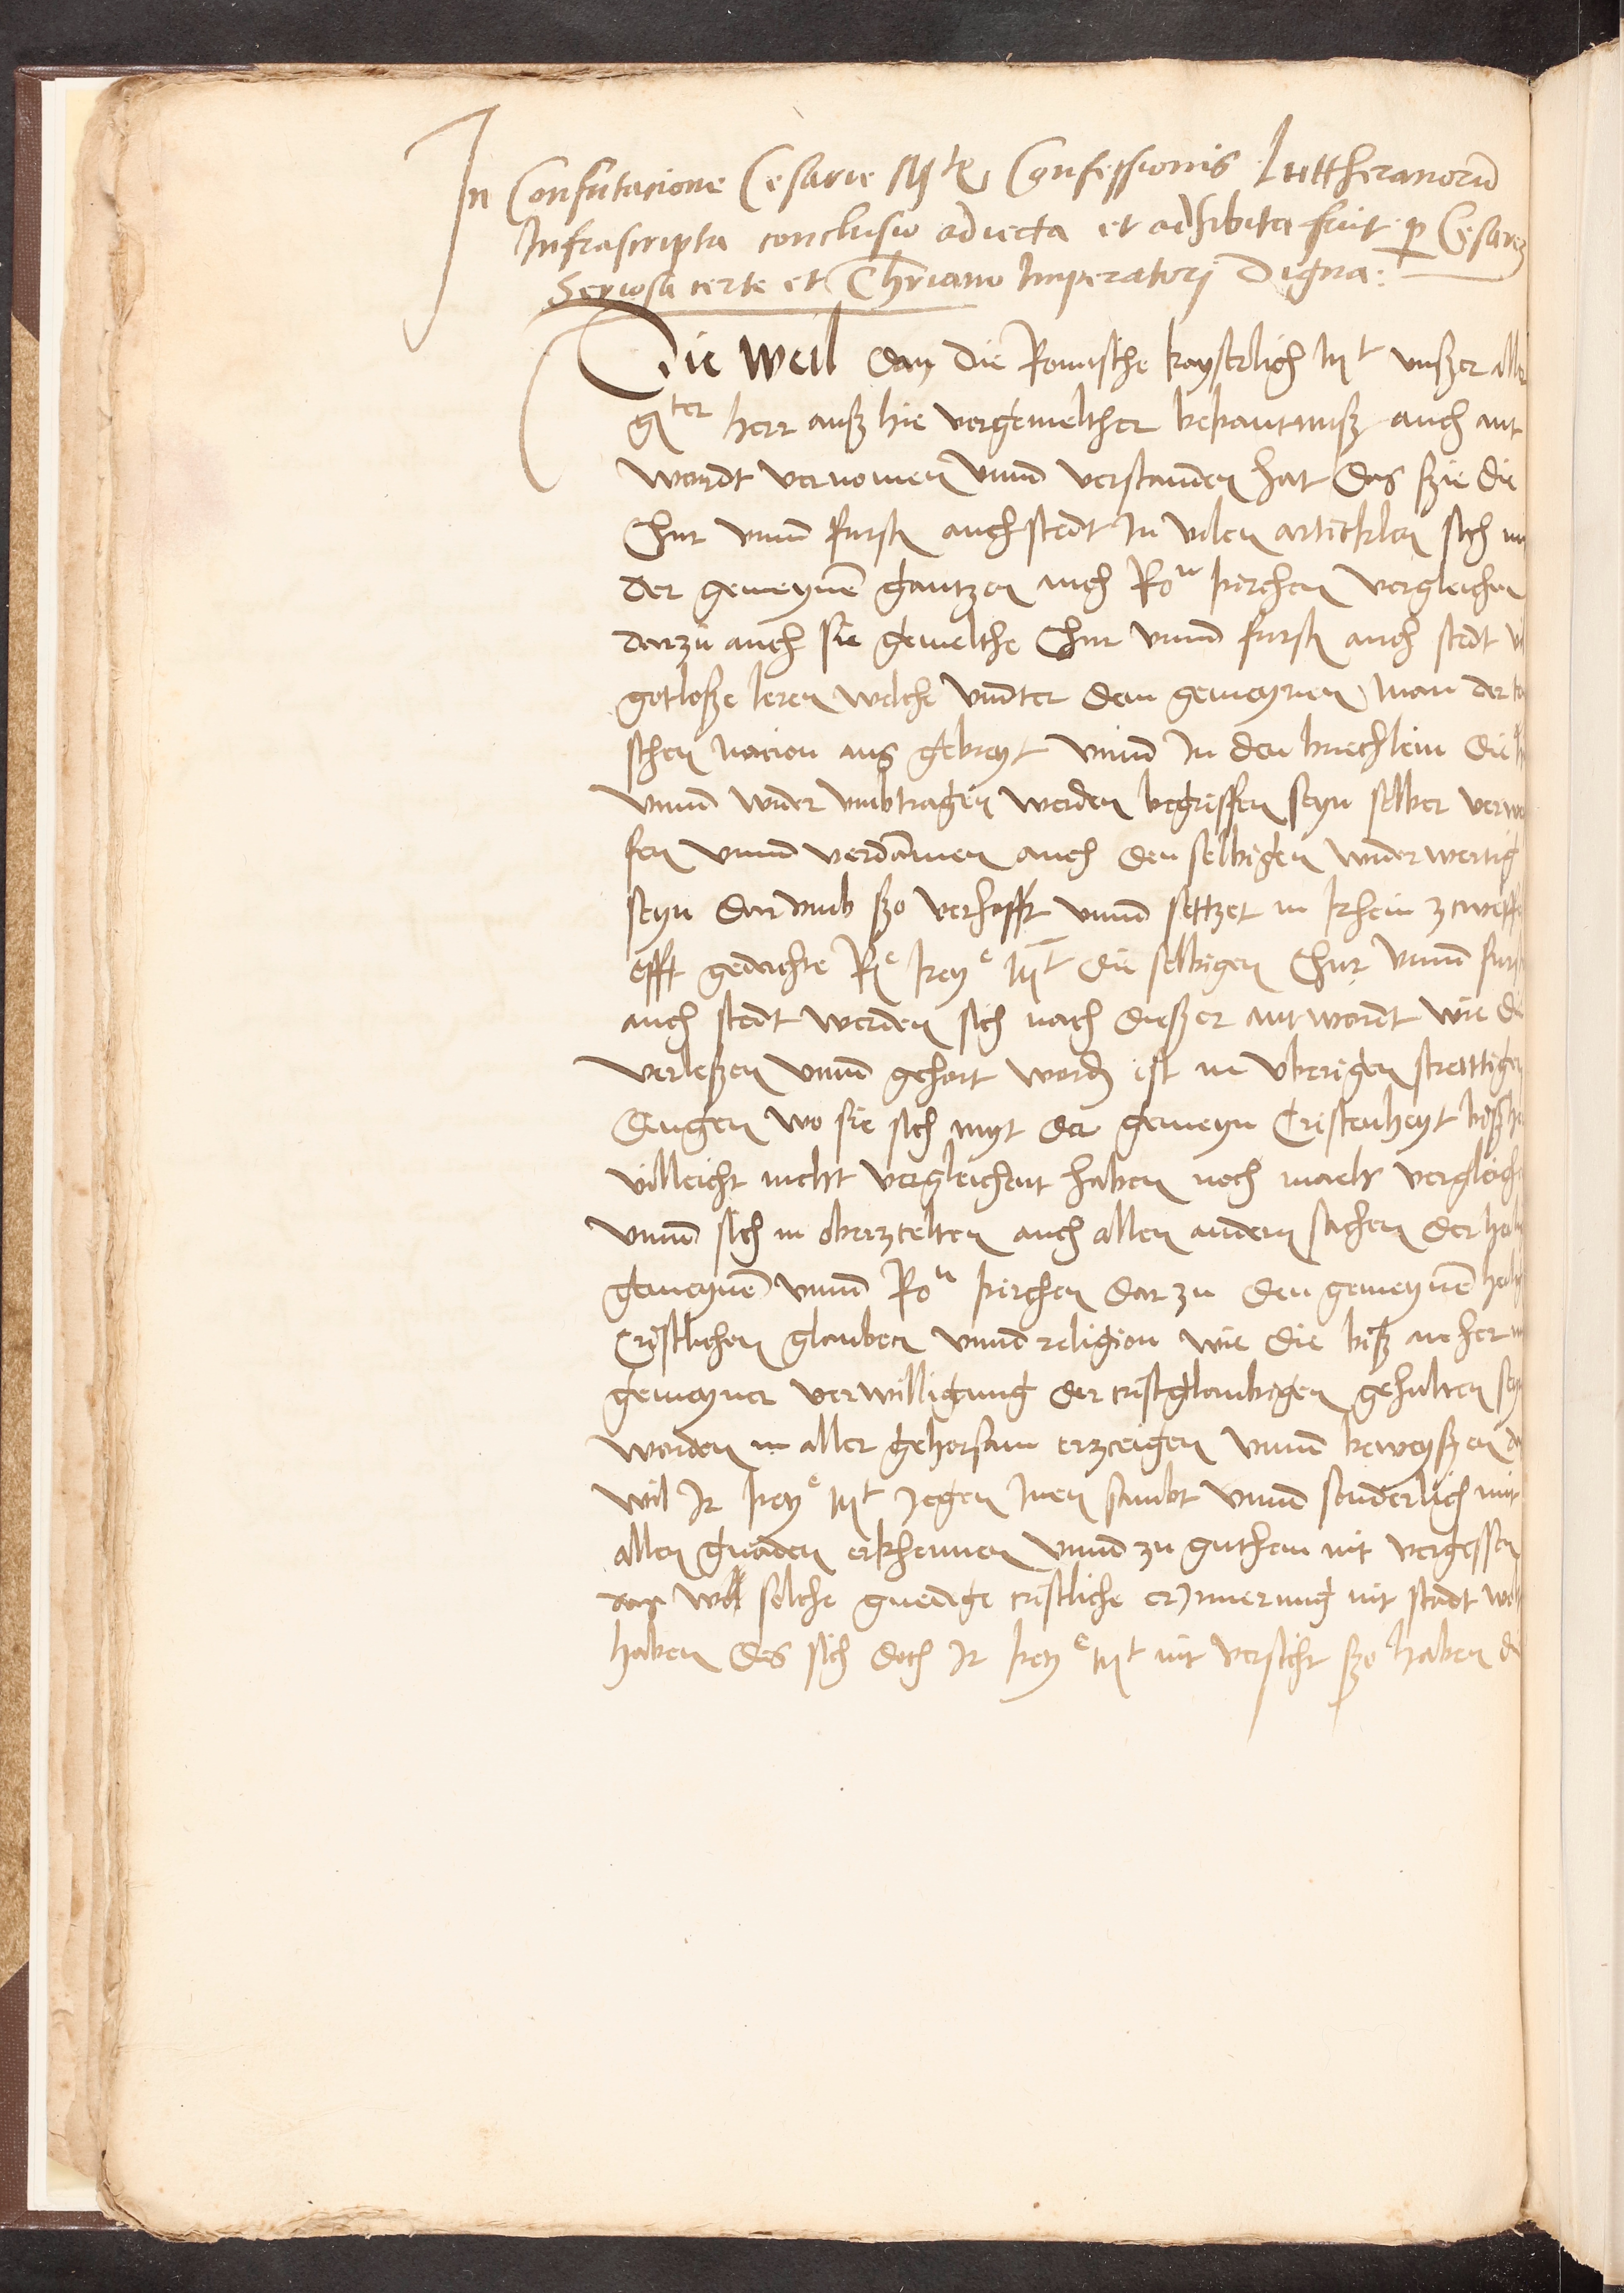 In Confutacione Cesarie M^te Confessionis Luttheranorū
Infrascripta conclusio adiecta et adhibita fuit p Cesarē
Seriosa certe et Chriano Imperatorj Digna:
Die Weil dan die Romische kayserlich M^t unßer aller
g^ter herr auß hie vorgemelther bekantnuß auch ant
wordt vernomen unnd verstanden hat das sie die
Chur unnd furstn auch stedt In vilen articklen sich mi
der gemeynē gantzen auch Ro^n kirchen vergleichen
darzu auch sie gemelthe Chur unnd furstn auch stedt vi
gotloße leren welche unnter dem gemeynen man der
schen Nacion aus gebreyt unnd In den buechlein die
unnd wider umbtragen werden begriffen seyn selber verwe
fen unnd verdāmen auch den selbigen widerwertig
seyn darumb ßo verhofft unnd settzet in khein zweiffe
offt gedachte R^e key^e M^t die selbigen Chur unnd furst
auch stedt werden sich nach dießer antwordt wie die
verleßen unnd gehort wordn ist in uberigen strettigen
dingen wo sie sich myt der gemeyn Cristenheyt bißhe
villeicht nicht vergleichent haben noch maels vergleiche
unnd sich in oberzelten auch allen andern sachen der hei
gemeynē unnd Ro^n kirchen dar zu den gemeynē heili
Cristlichen glauben unnd religion wie die biß an her mi
gemeyner verwilligung der cristglaubigen gehalten sey
worden in aller gehorsam erzeigen unnd beweyßen das
wil Ir key^e M^t gegen Inen sambt unnd sonderlich mit
allen gnaden erkhennen unnd zu guthem nit vergessen
dan wo solche gnedige cristliche erJnnerung nit stadt wolt
haben des sich doch Ir key^e M^t nit versicht ßo haben di